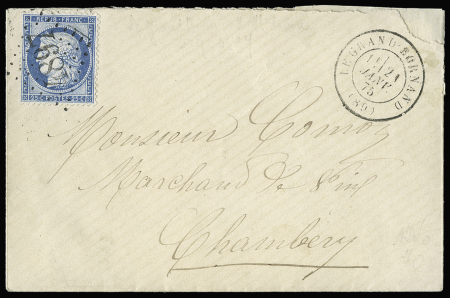 REPUB. FRANC.
25 C. POSTES 25 C.
LE GRAND-BORNAND
21
JANV.
75
(89)
Monsieur Comoz
Marchand de Vin
Chambéry